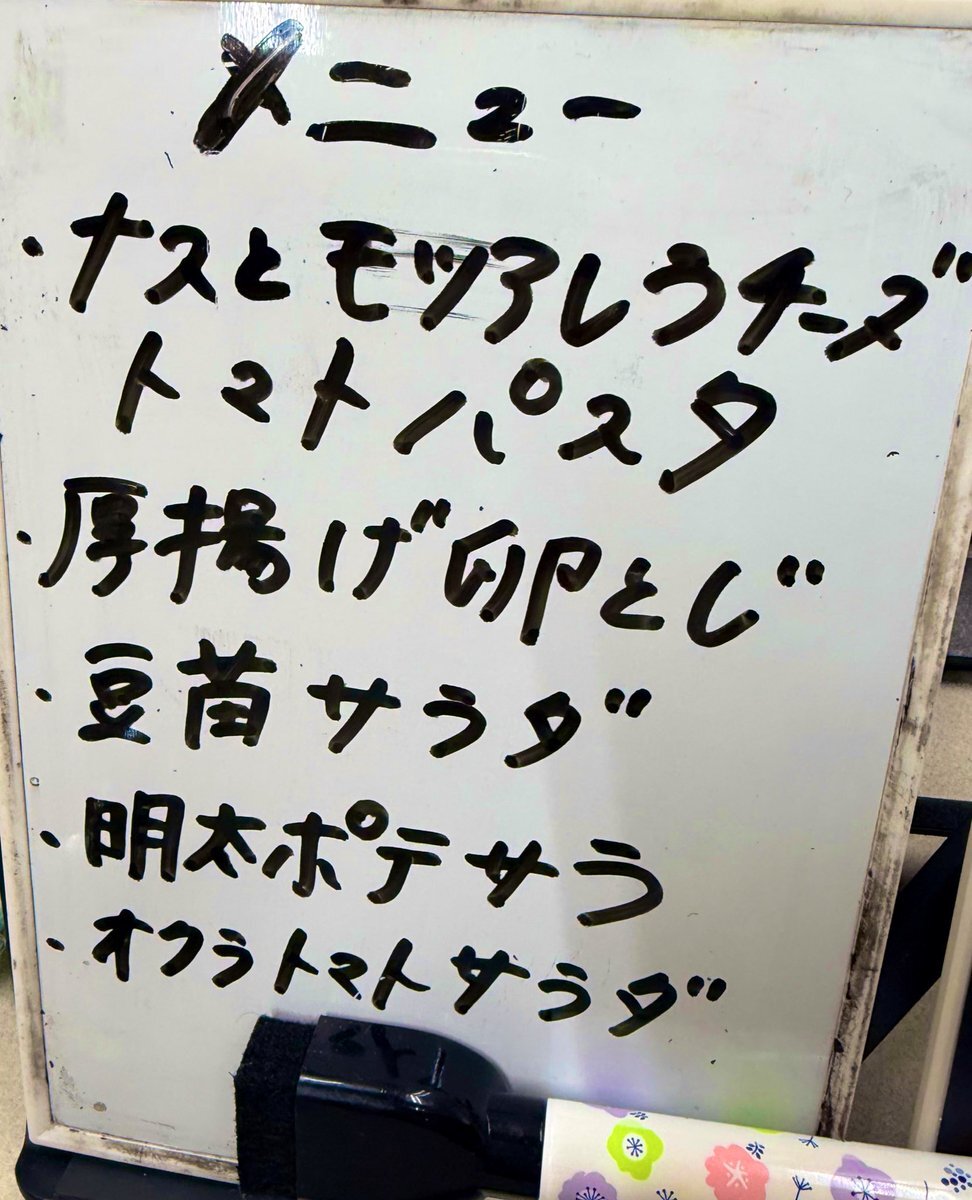 メニュー
・ナスとモツアレラチーズ
トマトパスタ
・厚揚げ卵とじ
・豆苗サラダ
・明太ポテサラ
・オクラトマトサラダ